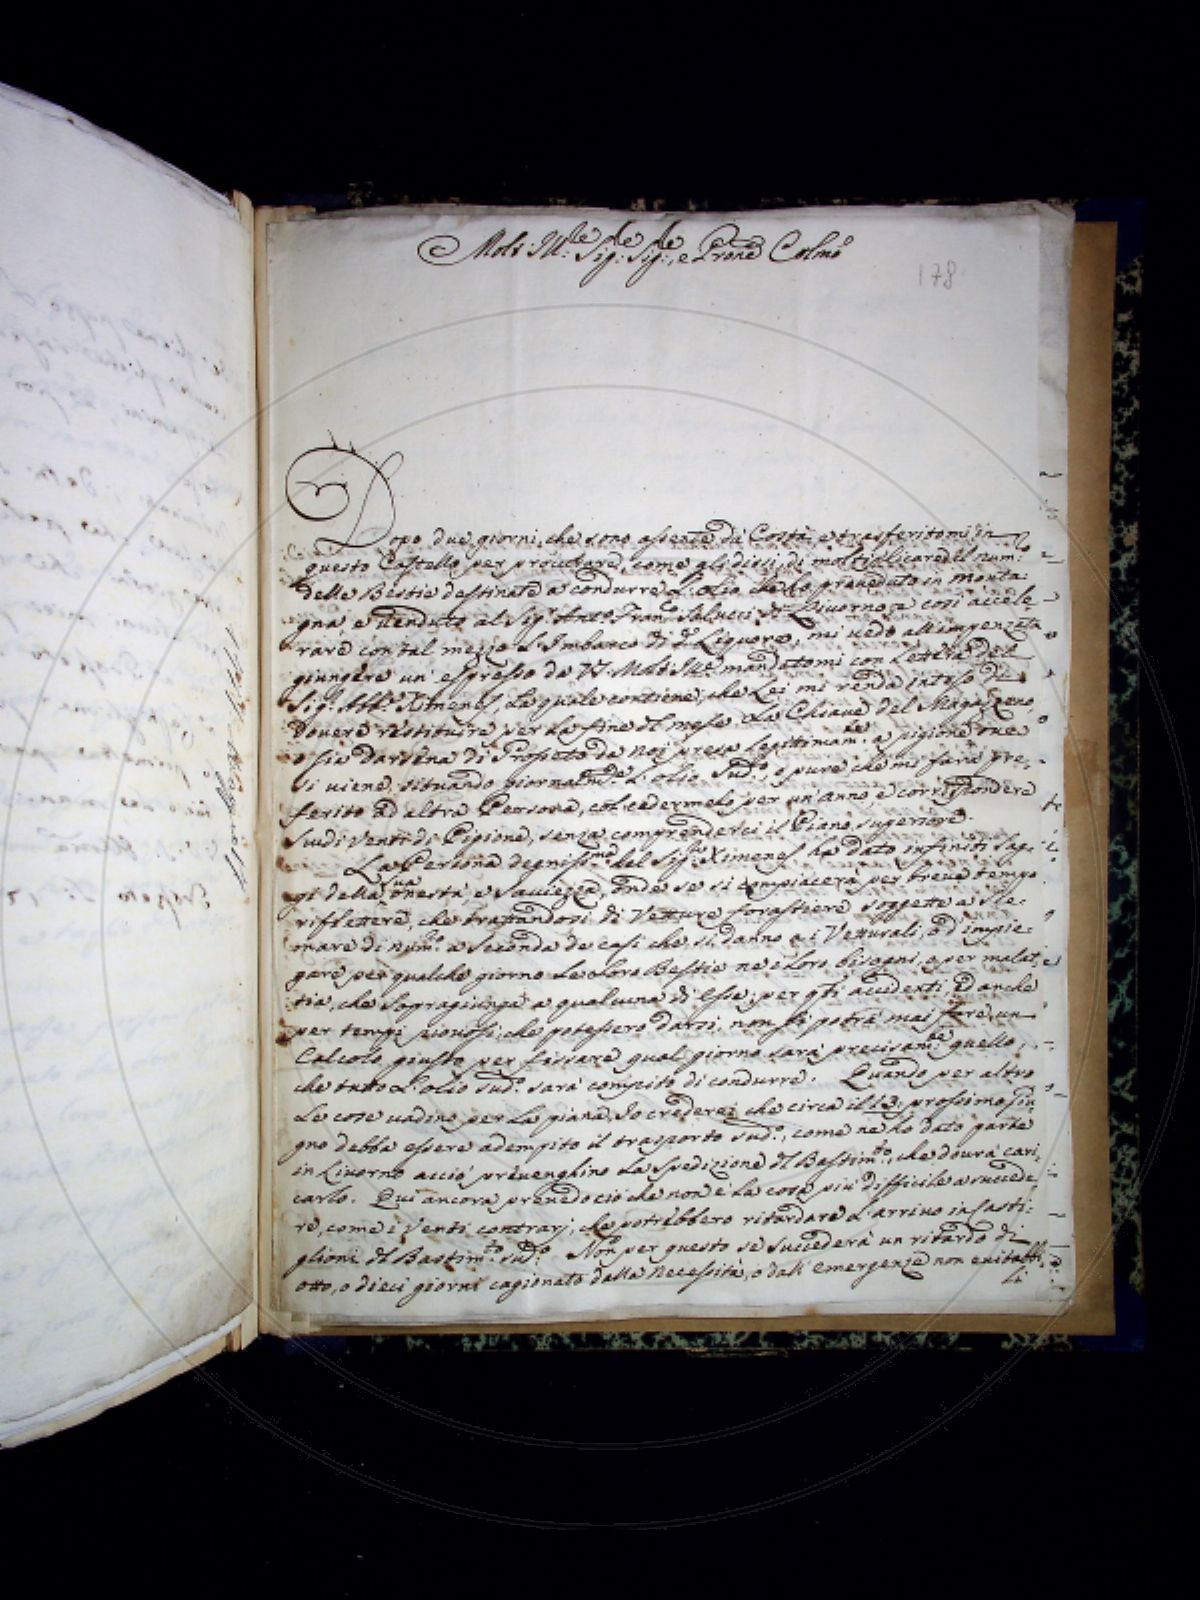 Molt' Ill:re Sig:re Sig:re, e Prone Colmo
178
Dopo due giorni, che sono assente da Costà, e trasferitomi in
questo Castello per procurare, come gli dissi, di moltiplicare il num:o
delle Bestie destinate a condurre l'olio, che ho proveduto in monta:
gna e venduto al Sig:r Ant:o Fran:co Salucci di Livorno, e così accele
rare con tal mezzo l'Imbarco di d:o Liquore, mi vedo all'impenzata
giungere un' espresso da VS. Molt' Ill:e mandatomi con Lettera del
Sig:r Abb:e Ximenes, La quale contiene, che Lei mi renda inteso di
dovere restituire per la fine del mese La Chiave del Magazzeno,
o sia darsena di Proseto da noi presa legittimam:te a pigione, ove
si viene situando giornalm:te l'olio sud:o, o pure che mi sarà pre,
ferito ad altra Persona, col cedermelo per un' anno e corrispondere
Scudi Venti di Pigione, senza comprenderci il Piano superiore.
La Persona degnissima del Sig:r Ximenes ha dato infiniti sag,
gi della sua onestà, e saviezza, onde se si compiacerà per breve tempo
riflettere, che trattandosi di Vetture forastiere soggette a sce:
mare di num:o a seconda de casi che si danno a i Vetturali, o d'impie:
gare per qualche giorno le loro Bestie ne i loro bisogni, o per malat,
tia, che sopragiunga a qualcuna di esse; per q:ti accidenti, ed anche
per tempi piovosi, che potessero darsi, non si potrà mai fare un
Calcolo giusto per fissare qual giorno sarà precisam:te quello,
che tutto l'olio sud:o sarà compito di condurre. Quando per altro
le cose vadino per la piana, Io crederei che circa il 13: prossimo Giu
gno debba essere adempito il trasporto sud:o, come ne ho dato parte
in Livorno acciò prevenghino la spedizione del Bastim:to, che dovrà cari:
carlo. Qui ancora prevedo ciò che non è la cosa più difficile a succede,
re, come i Venti contrarj, che potrebbero ritardare l'arrivo in Casti:
glioni del Bastim:to sud:o. Non per questo se succederà un ritardo di
otto, o dieci giorni cagionato dalla necessità, o dall' emergenze non evitabbi,
li